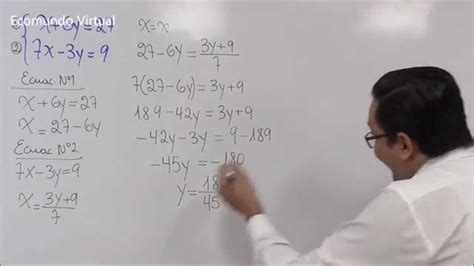 Ecomundo Virtual
① x+6y=27
② 7x-3y=9
Ecuac Nº1
x+6y=27
x=27-6y
Ecuac Nº2
7x-3y=9
x=3y+9/7
x=x
27-6y=3y+9/7
7(27-6y)=3y+9
189-42y=3y+9
-42y-3y=9-189
-45y=-180
y=18/45